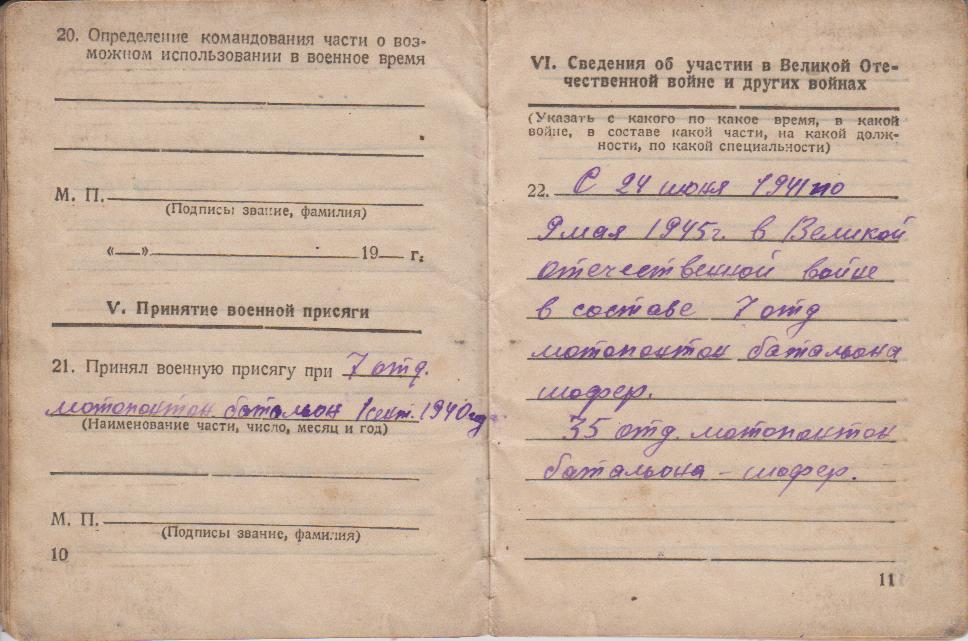 20. Определение командования части о воз-
можном использовании в военное время
М. П.
(Подписы звание, фамилия)
«—» 19— г.
V. Принятие военной присяги
21. Принял военную присягу при 7 отд.
мотопонтон батальон 1 сент. 1940 год
(Наименование части, число, месяц и год)
М. П.
(Подписы звание, фамилия)
10
VI. Сведения об участии в Великой Оте-
чественной войне и других войнах
(Указать с какого по какое время, в какой
войне, в составе какой части, на какой долж-
ности, по какой специальности)
22. С 24 июня 1941 по
9 мая 1945г. в Великой
отечественной войне
в составе 7 отд
мотопонтон батальона
шофер.
35 отд. мотопонтон
батальона – шофер.
11